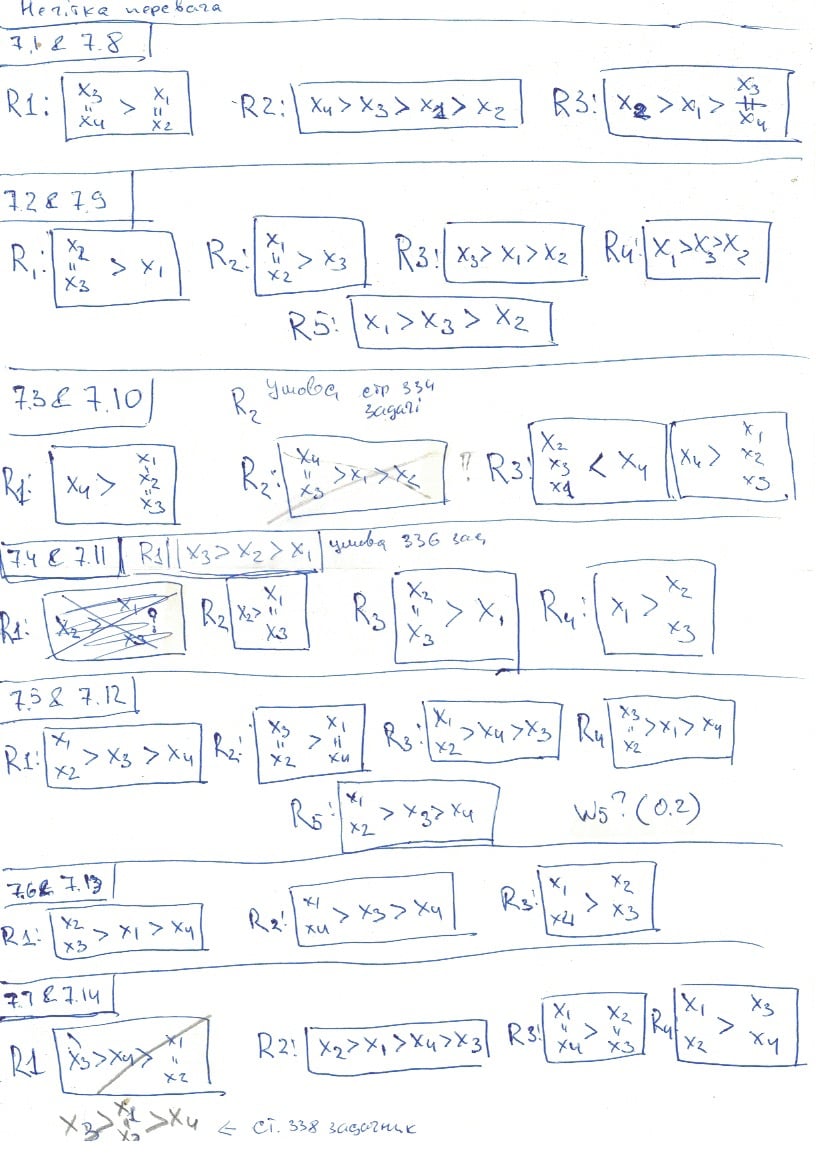 Нечітка перевага
7.1 & 7.8
R1: x3 = x4 > x1 = x2 R2: x4 > x3 > x1 > x2 R3: x2 > x1 > x3 = x4
7.2 & 7.9
R1: x2 = x3 > x1 R2: x1 = x2 > x3 R3: x3 > x1 > x2 R4: x1 > x3 > x2
R5: x1 > x3 > x2
7.3 & 7.10 R2 Умова стр 334
задачі
R1: x4 > x1 = x2 = x3 R2: x4 = x3 > x1 > x2 ? R3: x2 x3 x1 < x4 x4 > x1 x2 x3
7.4 & 7.11 R1 x3 > x2 > x1 умова 336 зад
R1: x2 > x1 x3 ? R2 x2 > x1 = x3 R3 x2 = x3 > x1 R4: x1 > x2 x3
7.5 & 7.12
R1: x1 x2 > x3 > x4 R2: x3 = x2 > x1 = x4 R3: x1 x2 > x4 > x3 R4 x3 = x2 > x1 > x4
R5: x1 x2 > x3 > x4 W5? (0.2)
7.6 & 7.13
R1: x2 x3 > x1 > x4 R2: x1 x4 > x3 > x4 R3: x1 x4 > x2 x3
7.7 & 7.14
R1 x3 > x4 > x1 = x2 R2: x2 > x1 > x4 > x3 R3: x1 = x4 > x2 = x3 R4 x1 x2 > x3 x4
x3 > x1 = x2 > x4 ← ст. 338 задачник